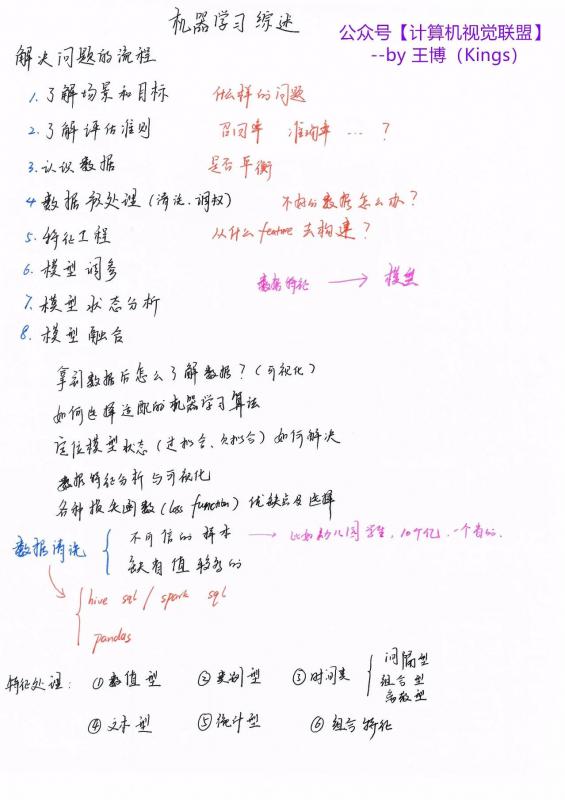 机器学习综述
公众号【计算机视觉联盟】
--by 王博（Kings）
解决问题的流程
1. 了解场景和目标 什么样的问题
2. 了解评估准则 召回率 准确率 … ?
3. 认识数据 是否平衡
4 数据预处理（清洗、调权） 不好的数据怎么办?
5. 特征工程 从什么 feature 去构建?
6. 模型调参
数据特征 → 模型
7. 模型状态分析
8. 模型融合
拿到数据后怎么了解数据?（可视化）
如何选择适配的机器学习算法
定位模型状态（过拟合、欠拟合）如何解决
数据特征分析与可视化
各种损失函数（loss function）优缺点及选择
数据清洗
不可信的样本 → 比如幼儿园学生，10个亿，一个省的.
缺省值较多的
hive sql / spark sql
pandas
特征处理： ①数值型 ②类别型 ③时间类
间隔型
组合型
离散型
④文本型 ⑤统计型 ⑥组合特征